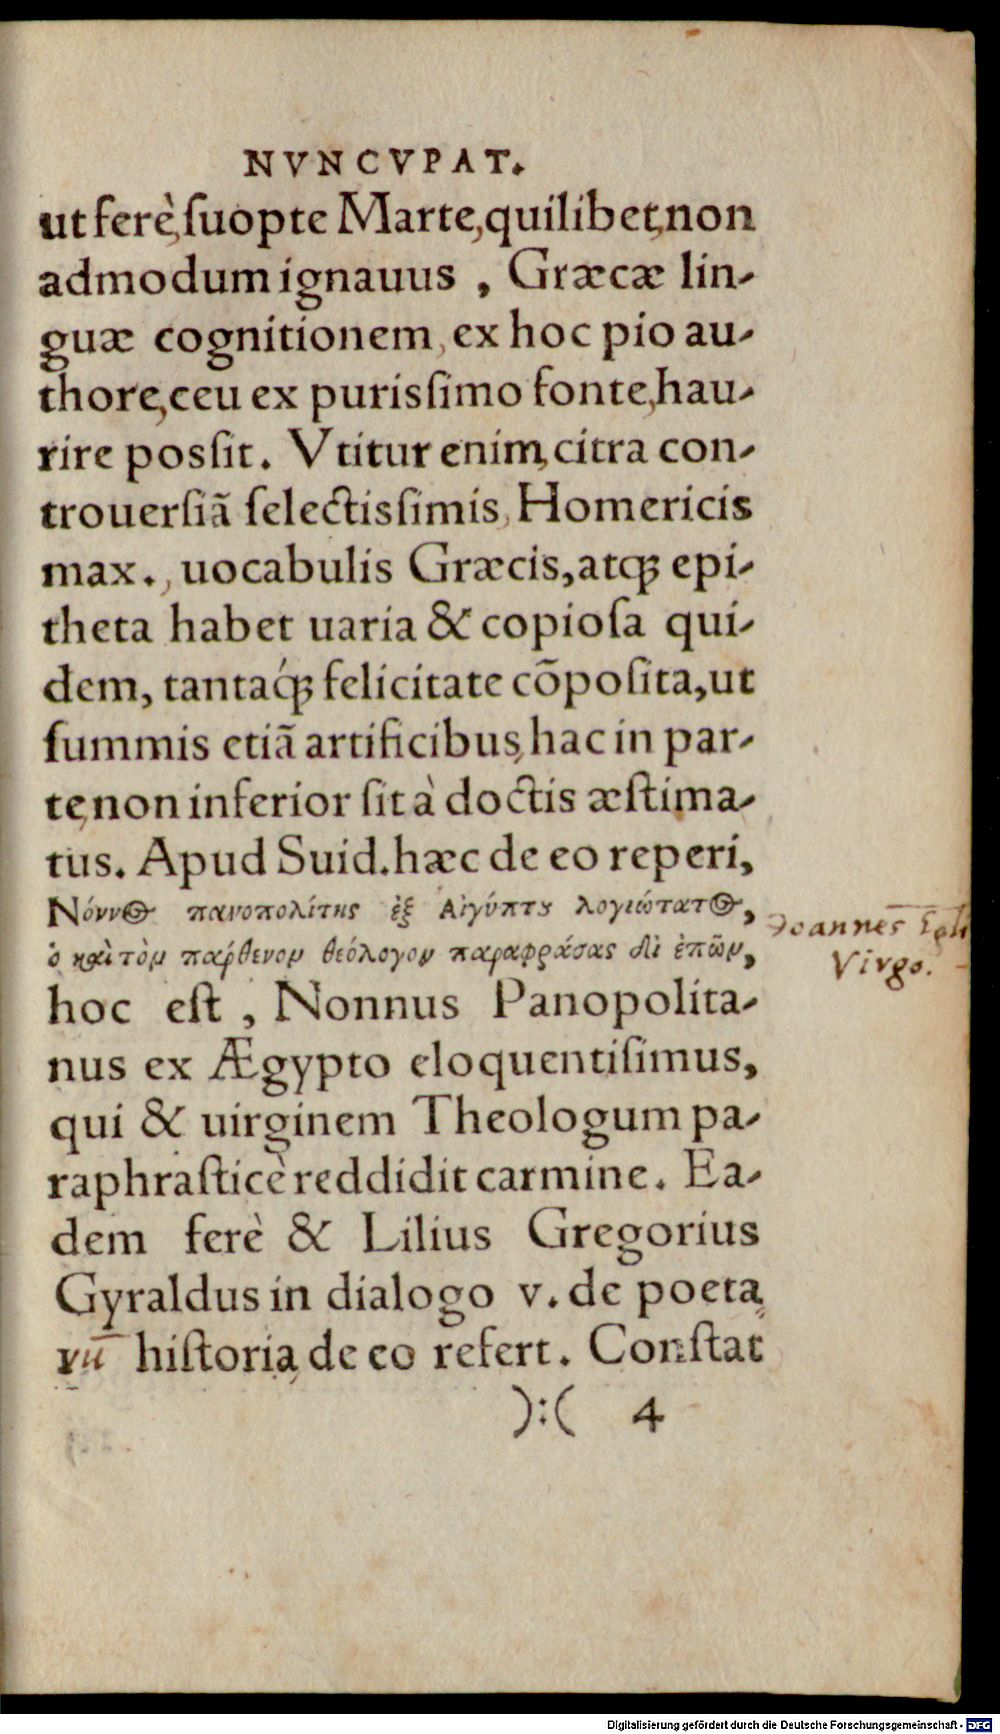 NVNCVPAT.
ut ferè, ſuopte Marte, quilibet, non
admodum ignauus , Græcæ lin-
guæ cognitionem, ex hoc pio au-
thore, ceu ex purisſimo fonte, hau-
rire posſit. Vtitur enim, citra con-
trouerſiã ſelectisſimis, Homericis
max., uocabulis Græcis, atq; epi-
theta habet uaria & copioſa qui-
dem, tantaq́; felicitate cõpoſita, ut
ſummis etiã artificibus, hac in par-
te, non inferior ſit à doctis æſtima-
tus. Apud Suid. hæc de eo reperi,
Νόννος πανοπολίτης ἐξ Αἰγύπτȣ λογιώτατος,
ὁ καὶ τὸν παρθένον θεόλογον παραφράσας δι' ἐπῶν,
Joannes
Virgo.
hoc eſt , Nonnus Panopolita-
nus ex Ægypto eloquentiſimus,
qui & uirginem Theologum pa-
raphraſticè reddidit carmine. Ea-
dem ferè & Lilius Gregorius
Gyraldus in dialogo v. de poeta
hiſtoria, de eo refert. Conſtat
):( 4
Digitalisierung gefördert durch die Deutsche Forschungsgemeinschaft - DFG